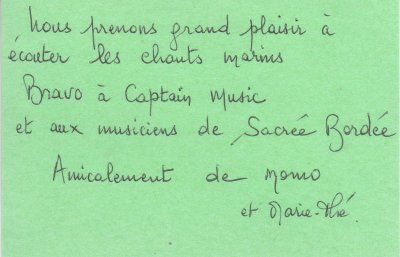 Nous prenons grand plaisir à
écouter les chants marins
Bravo à Captain Music
et aux musiciens de Sacrée Bordée
Amicalement de Momo
et Marie-Thé.